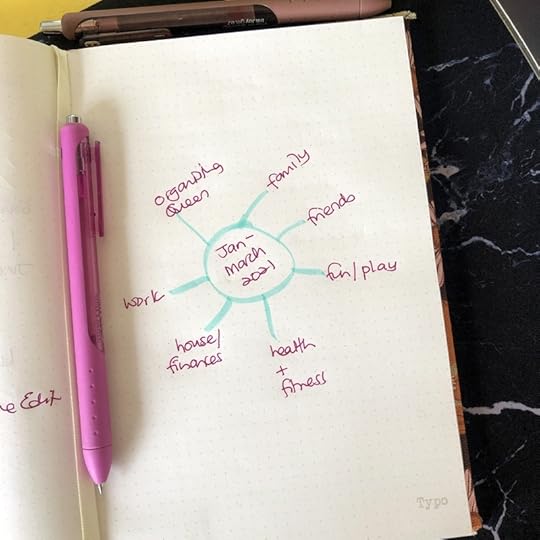 organising
Queen
family
friends
Jan-
march
2021
fun/play
work
house/
finances
health
+
fitness
e Edit
Typo